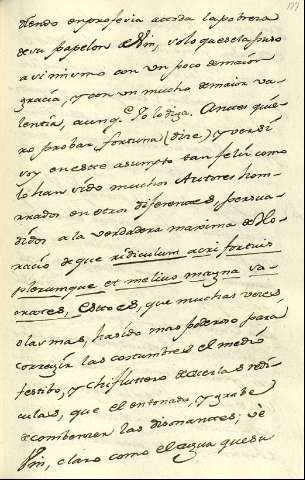 ciendo en profecia acerca la potrera
de su papelon el fin, y lo que es la puso
a si mismo con un poco de maior
gracia, y con un mucho de maior va-
lentia, aunq.e Yo lo diga. Antes quie-
ro probar fortuna (dixe) y ver si
soy en este assumpto tan feliz como
lo han sido muchos Autores hon-
rrados en otros diferentes, persua-
didos a la verdadera maxima de Ho-
racio de que ridiculum acri fortius
plerumque et melius magna se-
ccat res, esto es, que muchas veces
o las mas, ha sido mas poderoso para
corregir las costumbres el medio
festibo, y chiflutero de hacerlas redi-
culas, que el entonado, y grabe
de combencer las disonantes; se
fin, claro como el agua que da